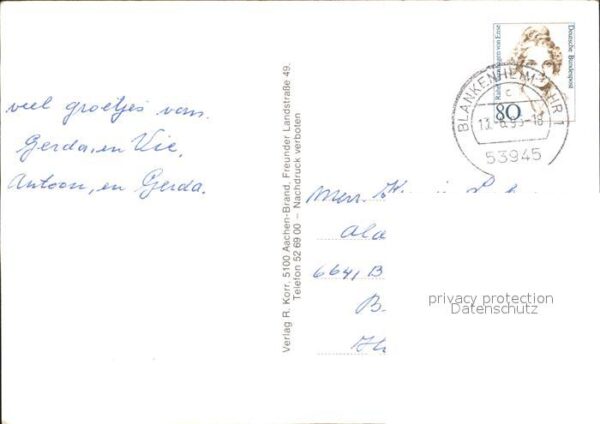 veel groetjes van
Gerda, en Vic,
Antoon, en Gerda.
Verlag R. Korr, 5100 Aachen-Brand, Freunder Landstraße 49,
Telefon 52 69 00 – Nachdruck verboten
Deutsche Bundespost
80
BLANKENHEIM, AHR 1
c
53945
6641 B
B.
privacy protection
Datenschutz